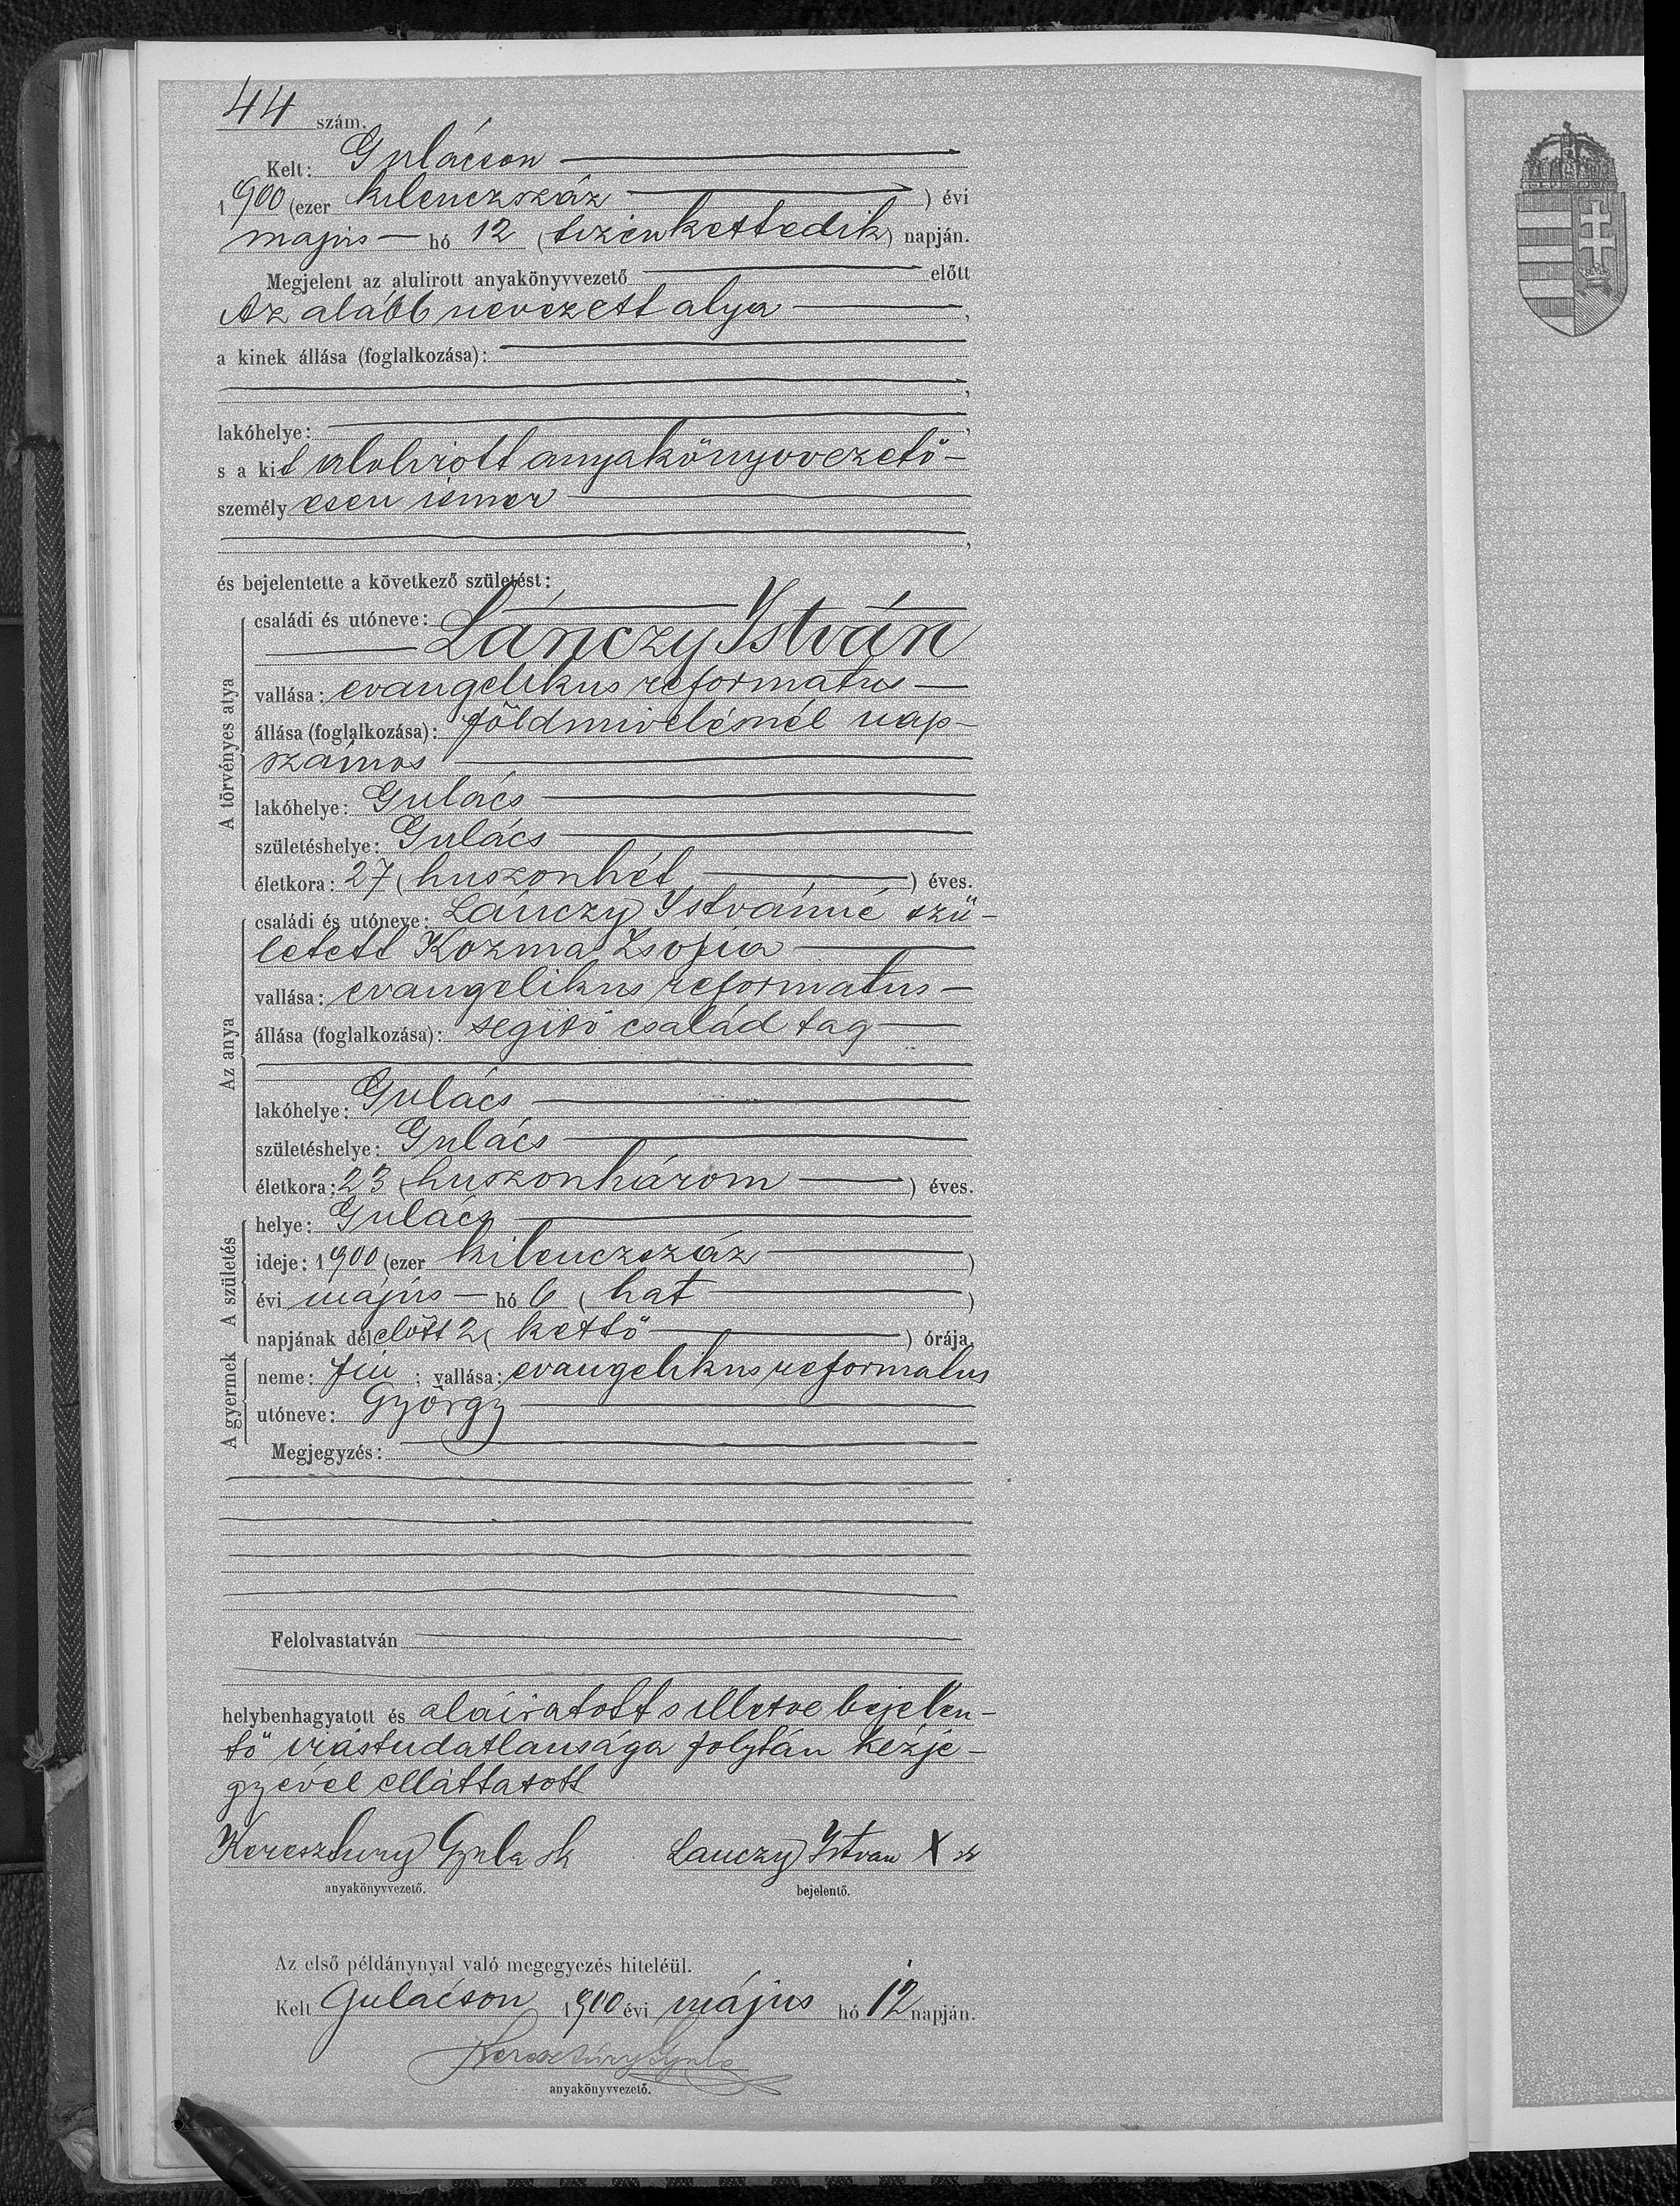 44 szám.
Kelt: Gulácson
1900 (ezer kilenczszáz ) évi
majus hó 12 (tizenkettedik) napján.
Megjelent az alulirott anyakönyvvezető előtt
Az alább nevezett atya ,
a kinek állása (foglalkozása):
,
lakóhelye: ,
s a kit alolirott anyakönyvvezető
személyesen ismer
,
és bejelentette a következő születést:
A törvényes atya
családi és utóneve:
Lánczy István
vallása: evangelikus reformatus
állása (foglalkozása): földmivelésnél nap-
számos
lakóhelye: Gulács
születéshelye: Gulács
életkora: 27 (huszonhét ) éves.
Az anya
családi és utóneve: Lánczy Istvánné szü-
letett Kozma Zsofia
vallása: evangelikus reformatus
állása (foglalkozása): segitő család tag
lakóhelye: Gulács
születéshelye: Gulács
életkora: 23 (huszonhárom ) éves.
A születés
helye: Gulács
ideje: 1900 (ezer kilenczszáz )
évi május hó 6 (hat )
napjának délelőtt 2 (kettő ) órája.
A gyermek
neme: fiu ; vallása: evangelikus reformatus
utóneve: György
Megjegyzés:
Felolvastatván
helybenhagyatott és aláiratott s illetve bejelen-
tő irástudatlansága folytán kézje-
gyével elláttatott
Keresztury Gyula sk Lanczy Istvan X
anyakönyvvezető. bejelentő.
Az első példánynyal való megegyezés hiteléül.
Kelt Gulácson 1900 évi május hó 12 napján.
Keresztúry Gyula
anyakönyvvezető.